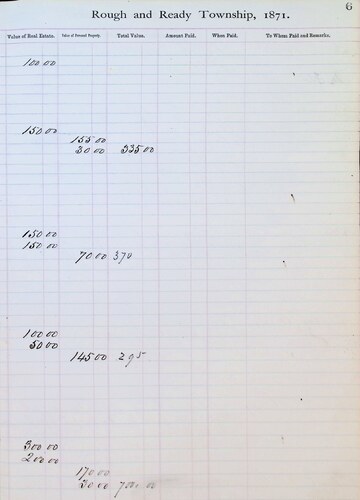 6
Rough and Ready Township, 1871.
Value of Real Estate. Value of Personal Property. Total Value. Amount Paid. When Paid. To Whom Paid and Remarks.
100 00
150 00
155 00
30 00 335 00
150 00
150 00
70 00 370
100 00
50 00
145 00 295
300 00
200 00
170 00
30 00 700 00